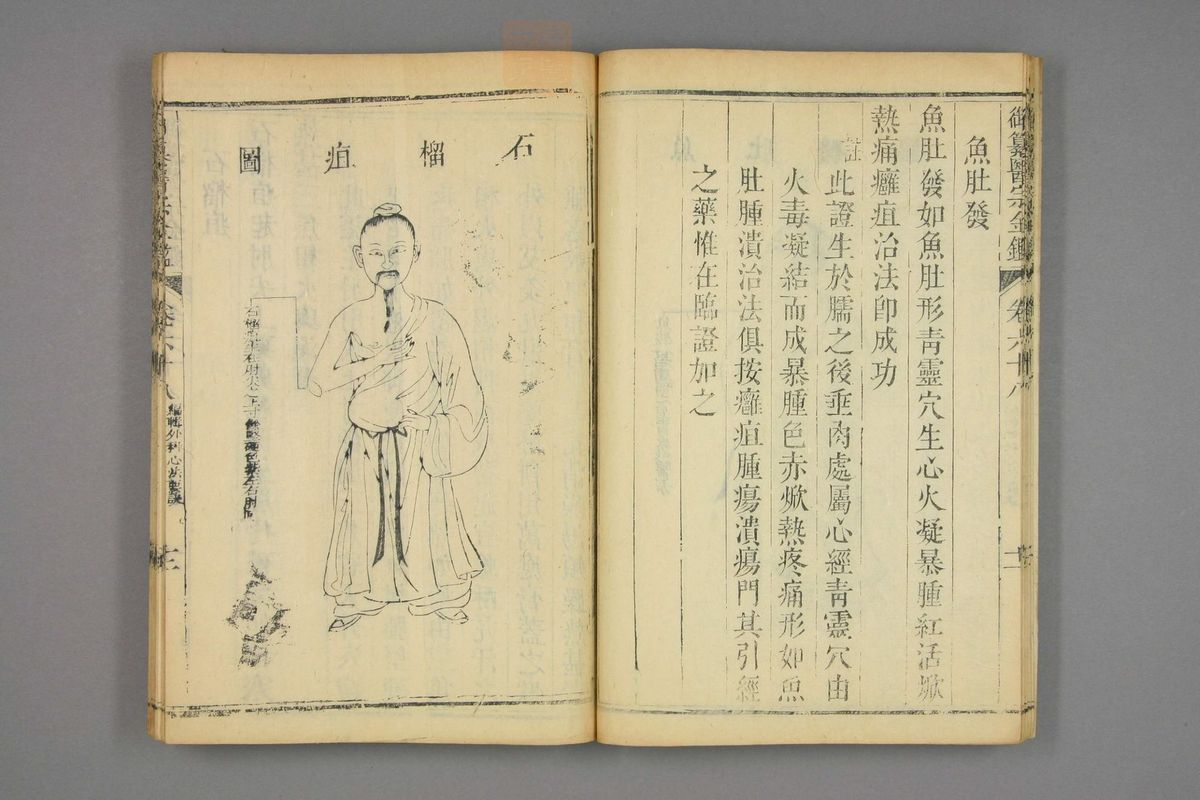 御纂醫宗金鑑 卷六十八
魚肚發
魚肚發如魚肚形青靈穴生心火凝暴腫紅活焮
熱痛癰疽治法即成功
註此證生於臑之後垂肉處屬心經青靈穴由
火毒凝結而成暴腫色赤焮熱疼痛形如魚
肚腫潰治法俱按癰疽腫瘍潰瘍門其引經
之藥惟在臨證加之
石榴疽圖
卷六十八 編輯外科心法要訣